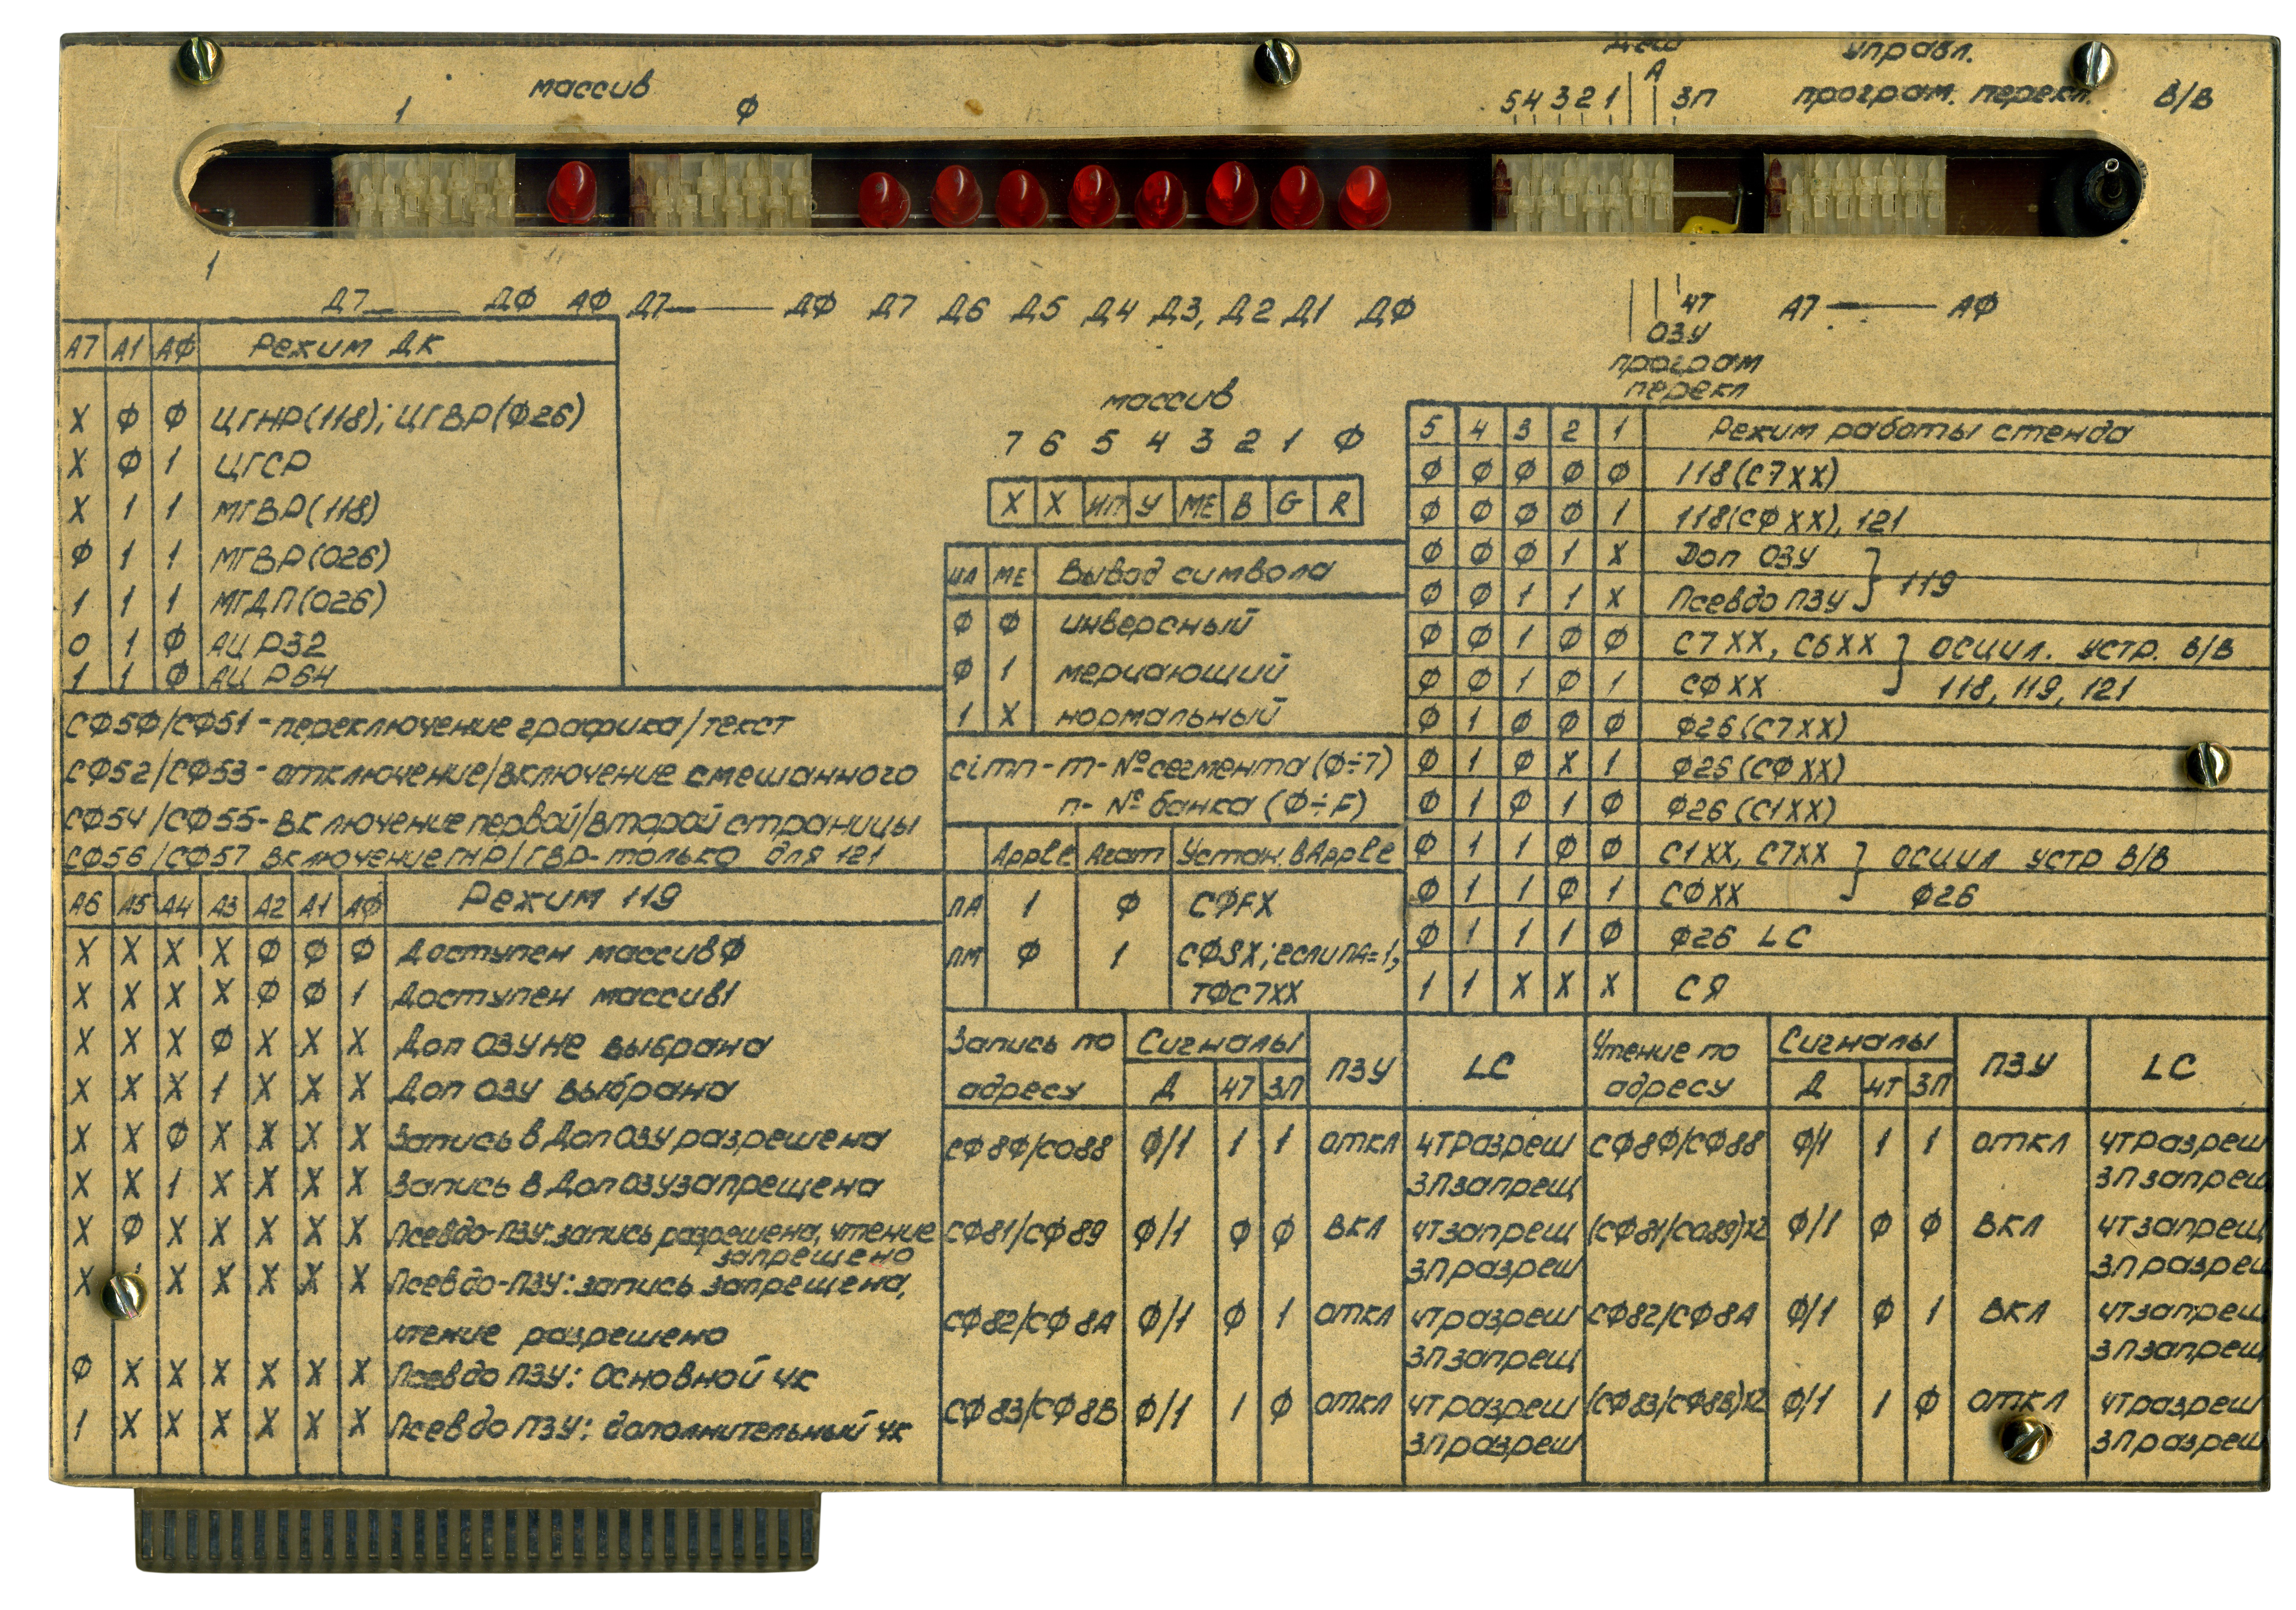 массив
1 Ф
А
5 4 3 2 1 ЗП
управл.
програм. перекл. В/В
1
Д7 ДФ АФ Д7 ДФ Д7 Д6 Д5 Д4 Д3, Д2 Д1 ДФ
ЧТ А7 — АФ
ОЗУ
програм
перекл
А7 А1 АФ Режим ДК
Х Ф Ф ЦГНР(118); ЦГВР(Ф26)
Х Ф 1 ЦГСР
Х 1 1 МГВР(118)
Ф 1 1 МГВР(026)
1 1 1 МГДП(026)
0 1 Ф АЦ Р32
1 1 Ф АЦ Р64
СФ5Ф/СФ51 - переключение графика/текст
СФ52/СФ53 - отключение/включение смешанного
СФ54/СФ55- включение первой/второй страницы
СФ56/СФ57 включение ГНР/ГВР- только для 121
А6 А5 А4 А3 А2 А1 АФ Режим 119
Х Х Х Х Ф Ф Ф Доступен массив Ф
Х Х Х Х Ф Ф 1 Доступен массив1
Х Х Х Ф Х Х Х Доп ОЗУ не выбрана
Х Х Х 1 Х Х Х Доп ОЗУ выбрана
Х Х Ф Х Х Х Х Запись в Доп ОЗУ разрешена
Х Х 1 Х Х Х Х Запись в Доп ОЗУ запрещена
Х Ф Х Х Х Х Х Псевдо-ПЗУ: запись разрешена, чтение
запрещено
Х Х Х Х Х Х Псевдо-ПЗУ: запись запрещена,
чтение разрешено
Ф Х Х Х Х Х Х Псевдо ПЗУ: Основной ЧК
1 Х Х Х Х Х Х Псевдо ПЗУ: дополнительный ЧК
массив
7 6 5 4 3 2 1 Ф
Х Х ИП У МЕ B G R
МЕ Вывод символа
Ф Ф инверсный
Ф 1 мерцающий
1 Х нормальный
c1mn - m - № сегмента (Ф÷7)
n - № банка (Ф÷F)
Apple Агат Устан. в Apple
ПА 1 Ф СФFХ
ПМ Ф 1 СФ8Х; если ПА=1,
ТФС7ХХ
5 4 3 2 1 Режим работы стенда
Ф Ф Ф Ф Ф 118(С7ХХ)
Ф Ф Ф Ф 1 118(СФХХ), 121
Ф Ф Ф 1 Х Доп ОЗУ
Ф Ф 1 1 Х Псевдо ПЗУ } 119
Ф Ф 1 Ф Ф С7ХХ, С6ХХ } ОСЦИЛ. УСТР. В/В
Ф Ф 1 Ф 1 СФХХ 118, 119, 121
Ф 1 Ф Ф Ф Ф26(С7ХХ)
Ф 1 Ф Х 1 Ф26(СФХХ)
Ф 1 Ф 1 Ф Ф26(С1ХХ)
Ф 1 1 Ф Ф С1ХХ, С7ХХ } ОСЦИЛ УСТР В/В
Ф 1 1 Ф 1 СФХХ Ф26
Ф 1 1 1 Ф Ф26 LC
1 1 Х Х Х СЯ
Запись по Сигналы ПЗУ LC Чтение по Сигналы ПЗУ LC
адресу Д ЧТ ЗП адресу Д ЧТ ЗП
СФ8Ф/С088 Ф/1 1 1 откл ЧТ разреш СФ8Ф/СФ88 Ф/1 1 1 откл ЧТ разреш
ЗП запрещ ЗП запрещ
СФ81/СФ89 Ф/1 Ф Ф вкл ЧТ запрещ (СФ81/С089)х2 Ф/1 Ф Ф вкл ЧТ запрещ
ЗП разреш ЗП разреш
СФ82/СФ8А Ф/1 Ф 1 откл ЧТ разреш СФ82/СФ8А Ф/1 Ф 1 вкл ЧТ запрещ
ЗП запрещ ЗП запрещ
СФ83/СФ8В Ф/1 1 Ф откл ЧТ разреш (СФ83/СФ8В)х2 Ф/1 1 Ф откл ЧТ разреш
ЗП разреш ЗП разреш